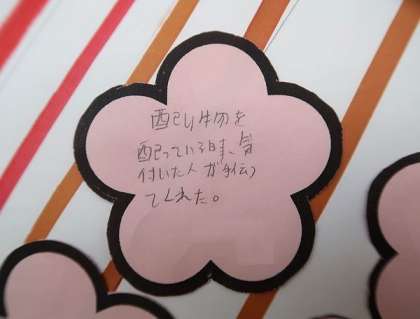 配り物を
配っている時、気
付いた人が手伝っ
てくれた。